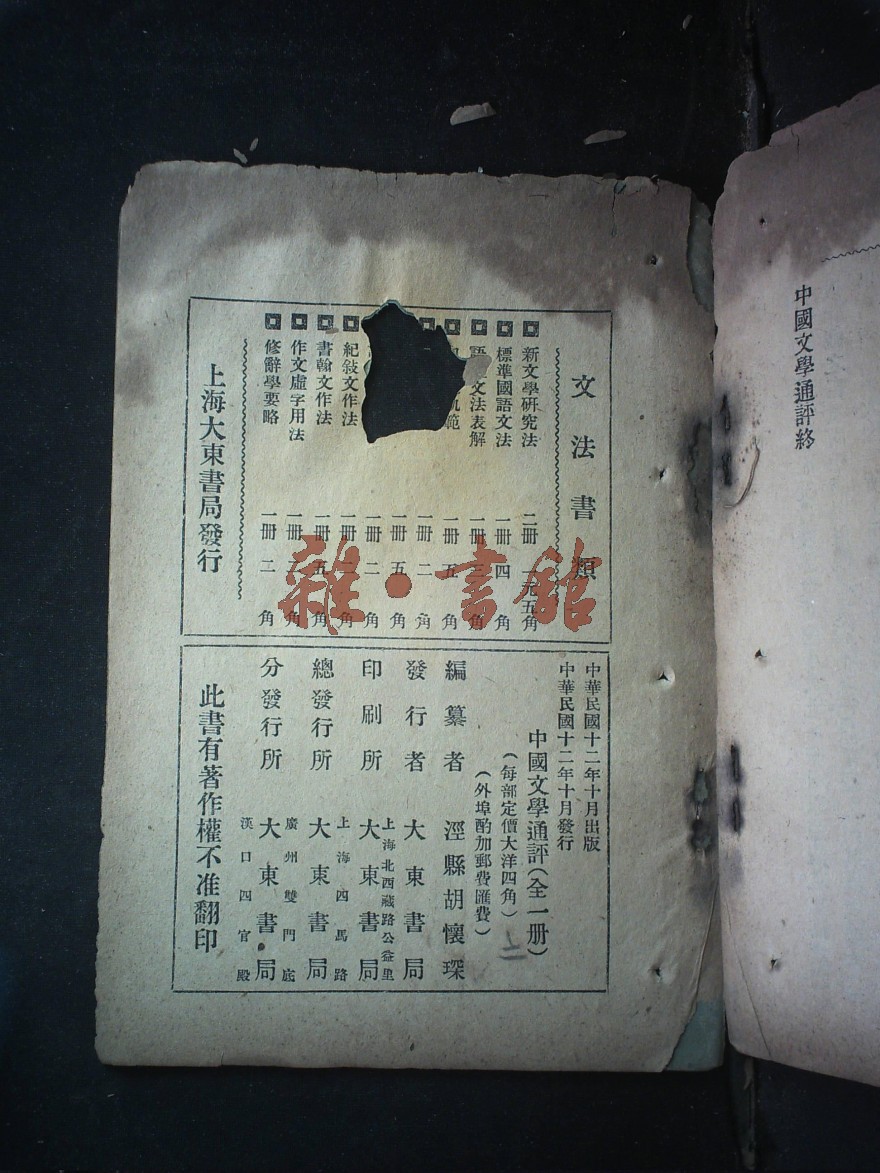 中國文學通評終
文法書類
新文學研究法 二冊 一元五角
標準國語文法 一冊 四角
語文法表解 一冊 三角
範 一冊 五角
一冊 二角
一冊 五角
一冊 二角
紀敍文作法 一冊 角
書翰文作法 一冊 五角
作文虛字用法 一冊 角
修辭學要略 一冊 二角
上海大東書局發行
中華民國十二年十月出版
中華民國十二年十月發行
中國文學通評(全一册)
(每部定價大洋四角)
(外埠酌加郵費匯費)
編纂者 涇縣胡懷琛
發行者 大東書局
上海北西藏路公益里
印刷所 大東書局
上海四馬路
總發行所 大東書局
廣州雙門底
分發行所 大東書局
漢口四官殿
此書有著作權不准翻印
雜·書館